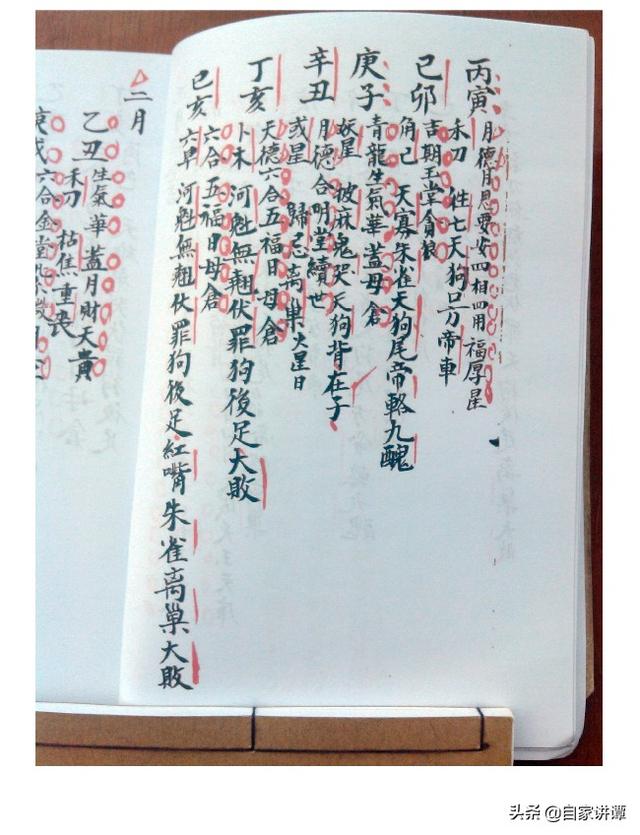 丙寅 月德月恩要安四相四用福厚星
禾刀 性七天狗只刀帝車
己卯 吉期王堂貪狼
角己 天寡朱雀天狗尾帝輅九醜
庚子 青龍生氣華蓋母倉
妖星 披麻鬼哭天狗背在子
辛丑 月德合明堂續世
或星 歸忌离巢火星日
丁亥 天德六合五福日母倉
卜木 河魁無翹伏罪狗後足大敗
己亥 六合五福日母倉
六早 河魁無翹伏罪狗後足紅嘴朱雀离巢大敗
二月
乙丑 生氣華蓋月財天貴
禾刀 枯焦重喪
庚戌 六合金堂
头条 @自家讲谭